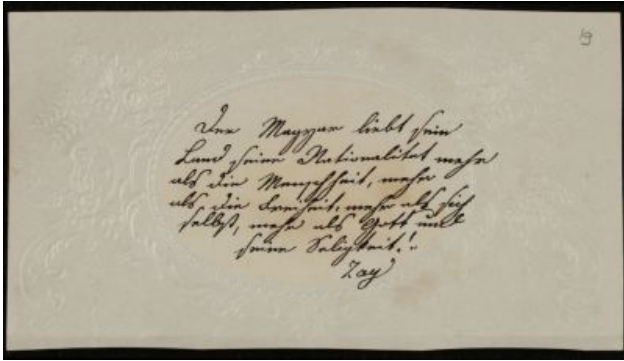 19
Der Magyar liebt sein
Land seine Nationalitat mehr
als die Menschheit, mehr
als die Freiheit, mehr als sich
selbst, mehr als Gott und
seine Seligkeit!
Zay